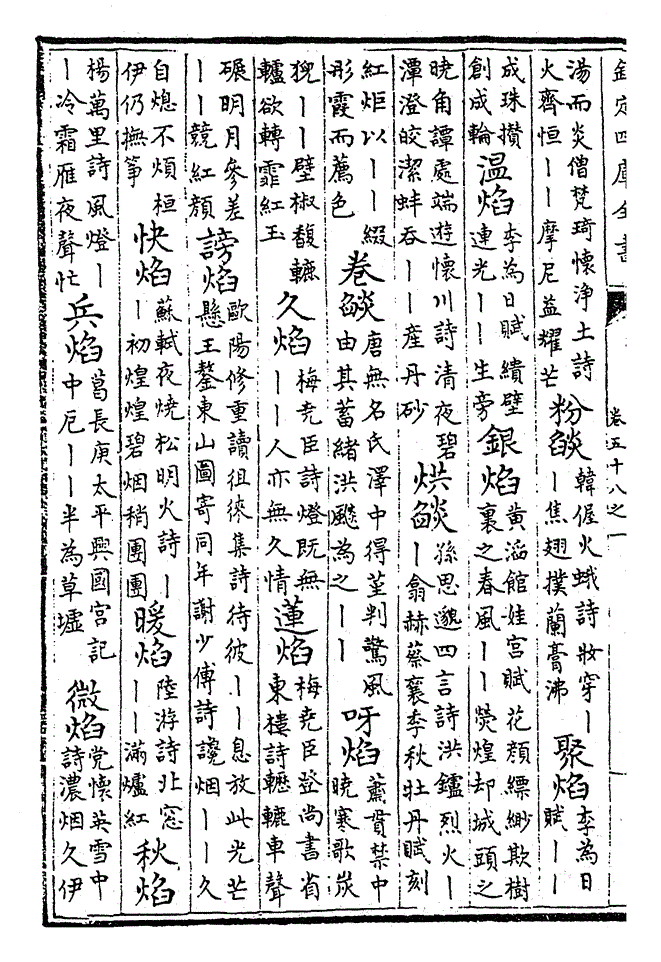 欽定四庫全書
卷五十八之一
湯而炎僧梵琦懷淨土詩火齊恒丨丨摩尼益耀芒 粉燄 韓偓火蛾詩妝穿丨丨焦翅撲蘭膏沸 聚焰 李為日賦丨丨
成珠攢創成輪 温焰 李為日賦繢壁連光丨丨生旁 銀焰 黃滔館娃宮賦花顏縹緲欺樹裏之春風丨丨熒煌却城頭之
曉角譚處端遊懷川詩清夜碧潭澄皎潔蚌吞丨丨産丹砂 烘燄 孫思邈四言詩洪鑪烈火丨丨翕赫蔡襄季秋牡丹賦刻
紅炬以丨丨綴彤霞而薦色 卷燄 唐無名氏澤中得堇判驚風由其蓄緒洪飇為之丨丨 呀焰 蕭貫禁中曉寒歌炭
猊丨丨壁椒馥轆轤欲轉霏紅玉 久焰 梅堯臣詩燈既無丨丨人亦無久情 蓮焰 梅堯臣登尚書省東樓詩轣轆車聲
碾明月參差丨丨競紅顏 謗焰 歐陽修重讀徂徠集詩待彼丨丨息放此光芒懸王鏊東山圖寄同年謝少傅詩讒烟丨丨久
自熄不煩桓伊仍撫箏 快焰 蘇軾夜燒松明火詩丨丨初煌煌碧烟稍團團 暖焰 陸游詩北窓丨丨滿爐紅 秋焰
楊萬里詩風燈丨丨冷霜雁夜聲忙 兵焰 葛長庚太平興國宮記中厄丨丨半為草墟 微焰 党懷英雪中詩濃烟久伊